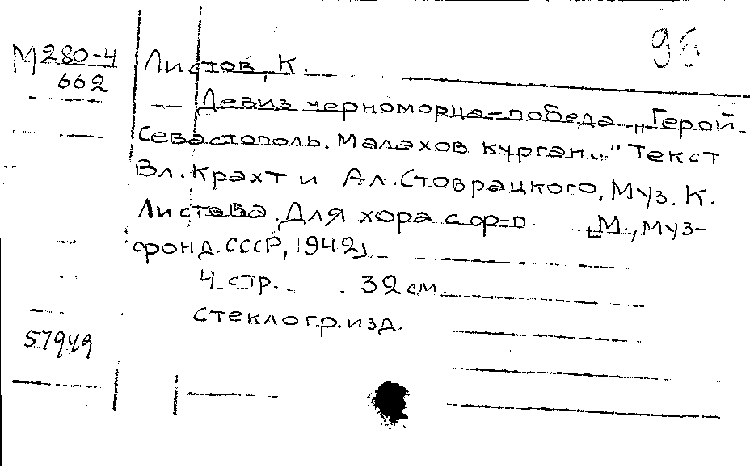 95
М280-4
662
Листов, К.
Девиз черноморца-победа. „Герой-
Севастополь. Малахов курган..." Текст
Вл. Крахт и Ал. Стоврацкого, Муз. К.
Листова. Для хора с ф-п. [М., Муз-
фонд СССР, 1942]
4 стр. 32 см
стеклогр. изд.
57949